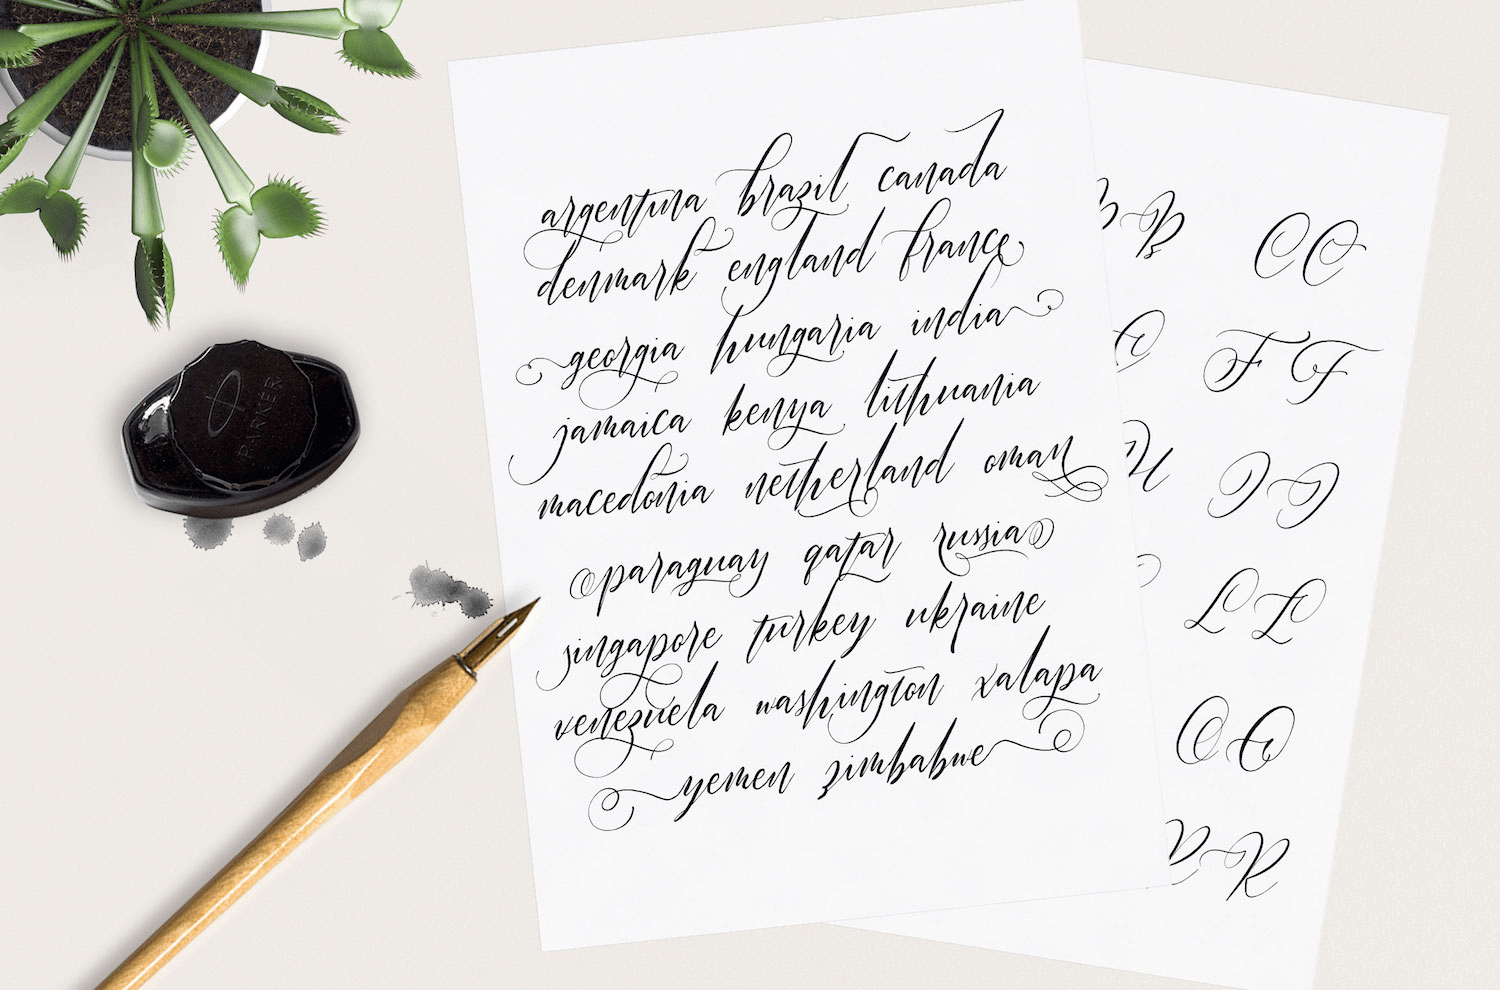 argentina brazil canada
denmark england france
georgia hungaria india
jamaica kenya lithuania
macedonia netherland oman
paraguay qatar russia
singapore turkey ukraine
venezuela washington xalapa
yemen zimbabwe
PARKER
B B
C C
F F
H
I I
L L
O O
R R